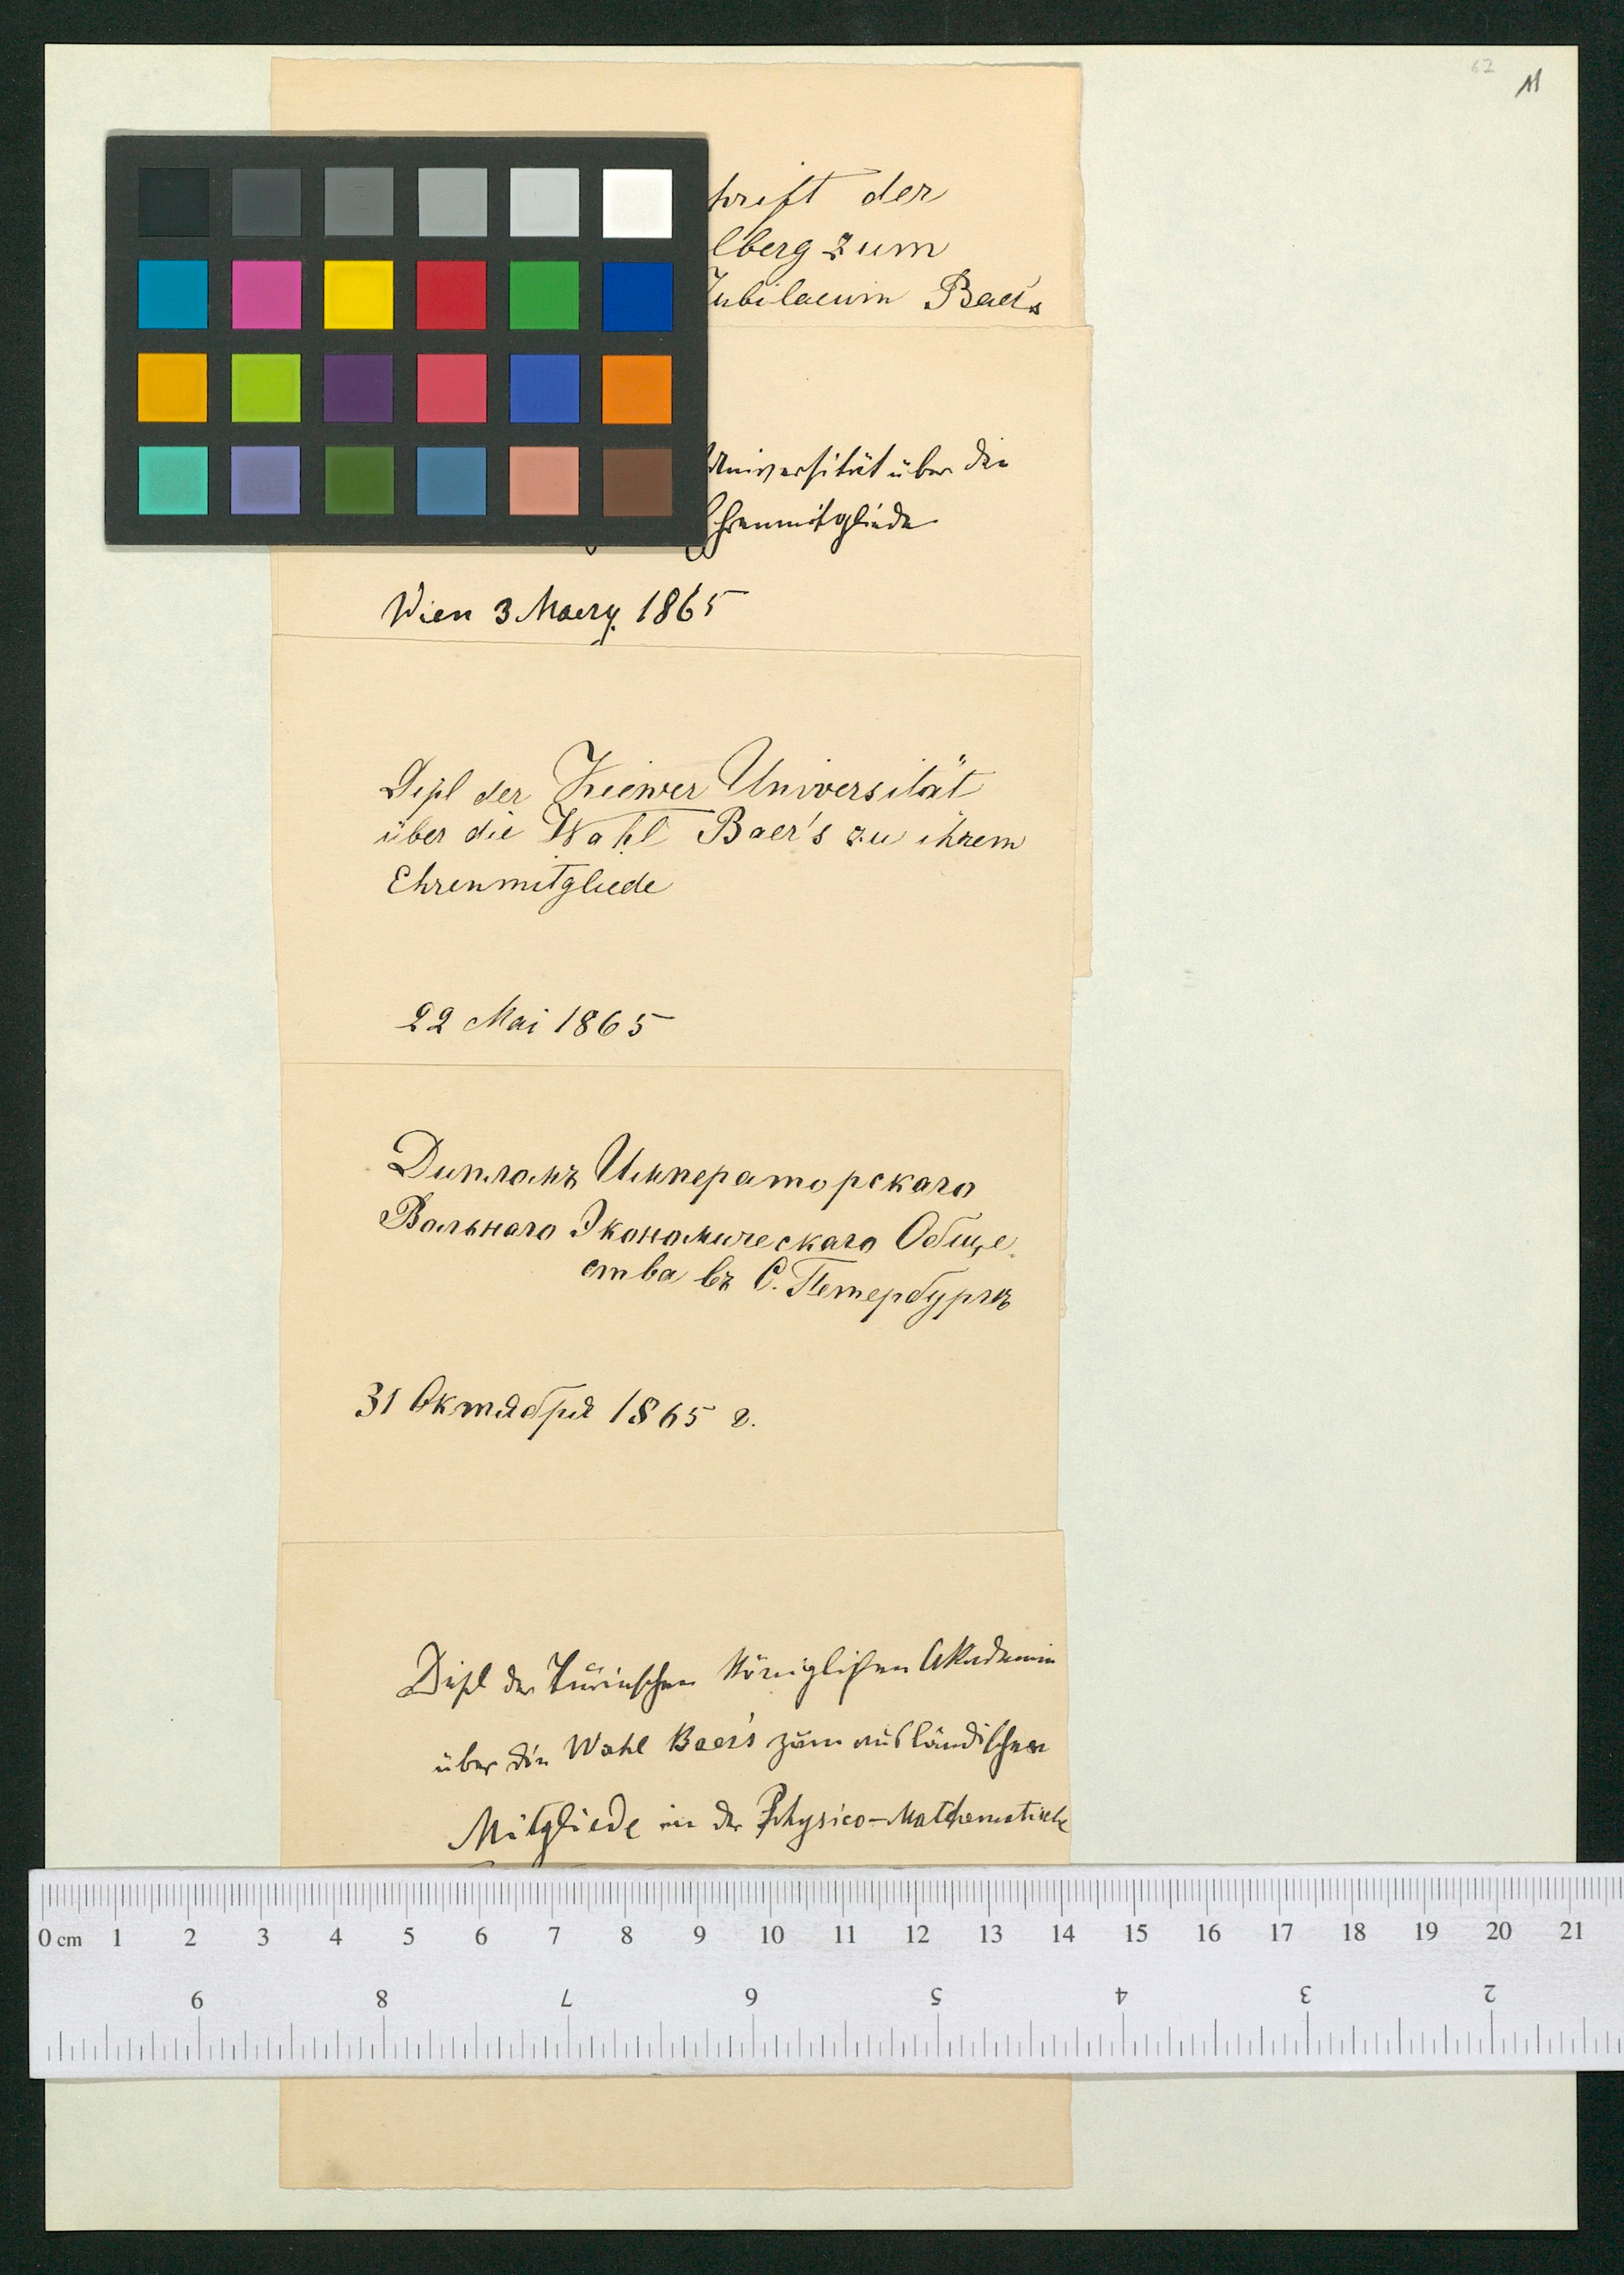 62 11
hrift der
lberg zum
Jubilaeum Baer's
Universität über die
Ehrenmitgliede
Wien 3 Maerz. 1865
Dipl der Kiewer Universität
über die Wahl Baer's zu ihrem
Ehrenmitgliede
22 Mai 1865
Дипломъ Императорскаго
Вольнаго Экономическаго Обще
ства въ С. Петербургѣ
31 Октября 1865 г.
Dipl der Turinschen Königlichen Akademie
über die Wahl Baer's zum ausländischen
Mitgliede in der Physico-Mathematische
0 cm 1 2 3 4 5 6 7 8 9 10 11 12 13 14 15 16 17 18 19 20 21
9 8 7 6 5 4 3 2